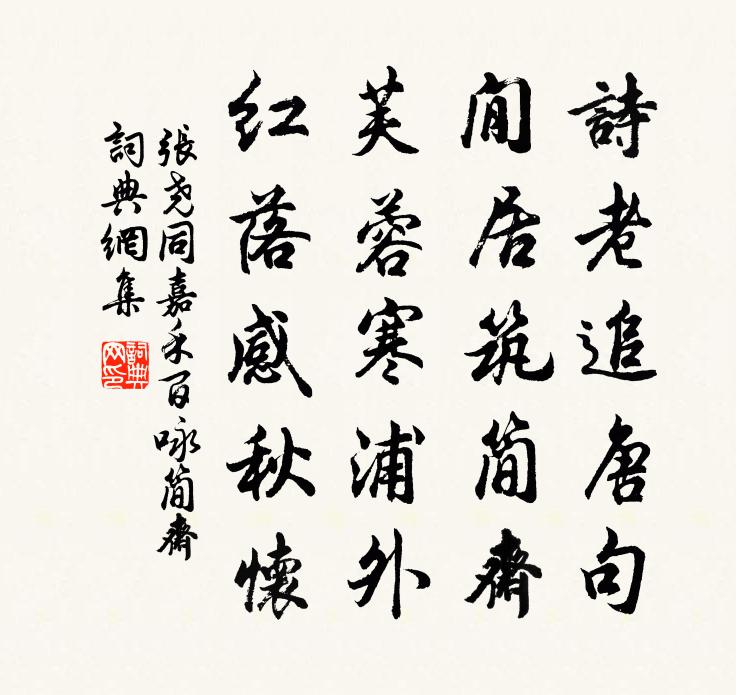 詩老追唐句
閒居筑簡齋
芙蓉寒浦外
红落感秋懷
張尧同嘉禾百咏簡齋
詞典網集
詞典网印